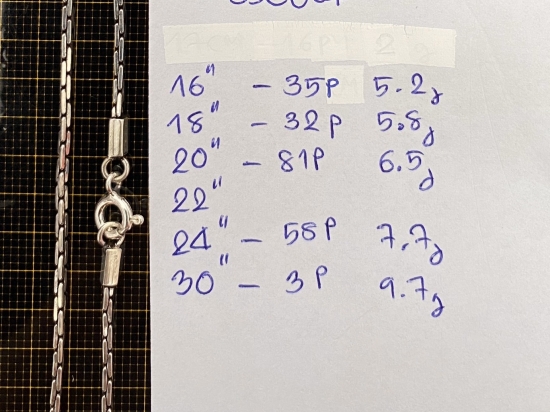 16" - 35P 5.2g
18" - 32P 5.8g
20" - 81P 6.5g
22"
24" - 58P 7.7g
30" - 3P 9.7g